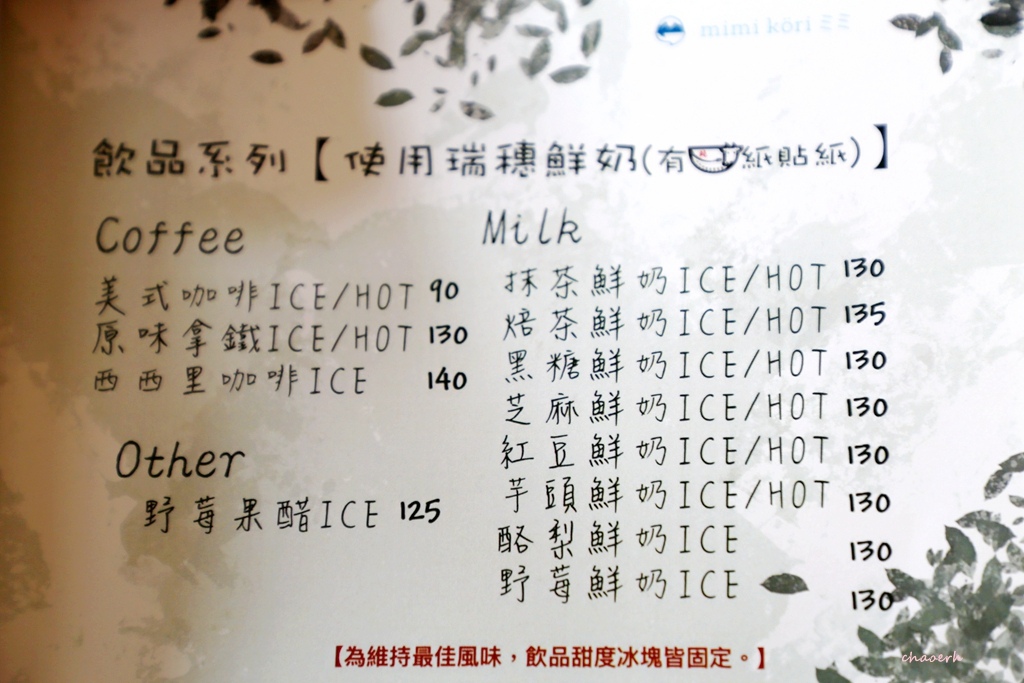 mimi kōri ミミ
飲品系列【使用瑞穗鮮奶(有紙貼紙)】
Coffee
美式咖啡ICE/HOT 90
原味拿鐵ICE/HOT 130
西西里咖啡ICE 140
Other
野莓果醋ICE 125
Milk
抹茶鮮奶ICE/HOT 130
焙茶鮮奶ICE/HOT 135
黑糖鮮奶ICE/HOT 130
芝麻鮮奶ICE/HOT 130
紅豆鮮奶ICE/HOT 130
芋頭鮮奶ICE/HOT 130
酪梨鮮奶ICE 130
野莓鮮奶ICE 130
【為維持最佳風味，飲品甜度冰塊皆固定。】
chaoerh